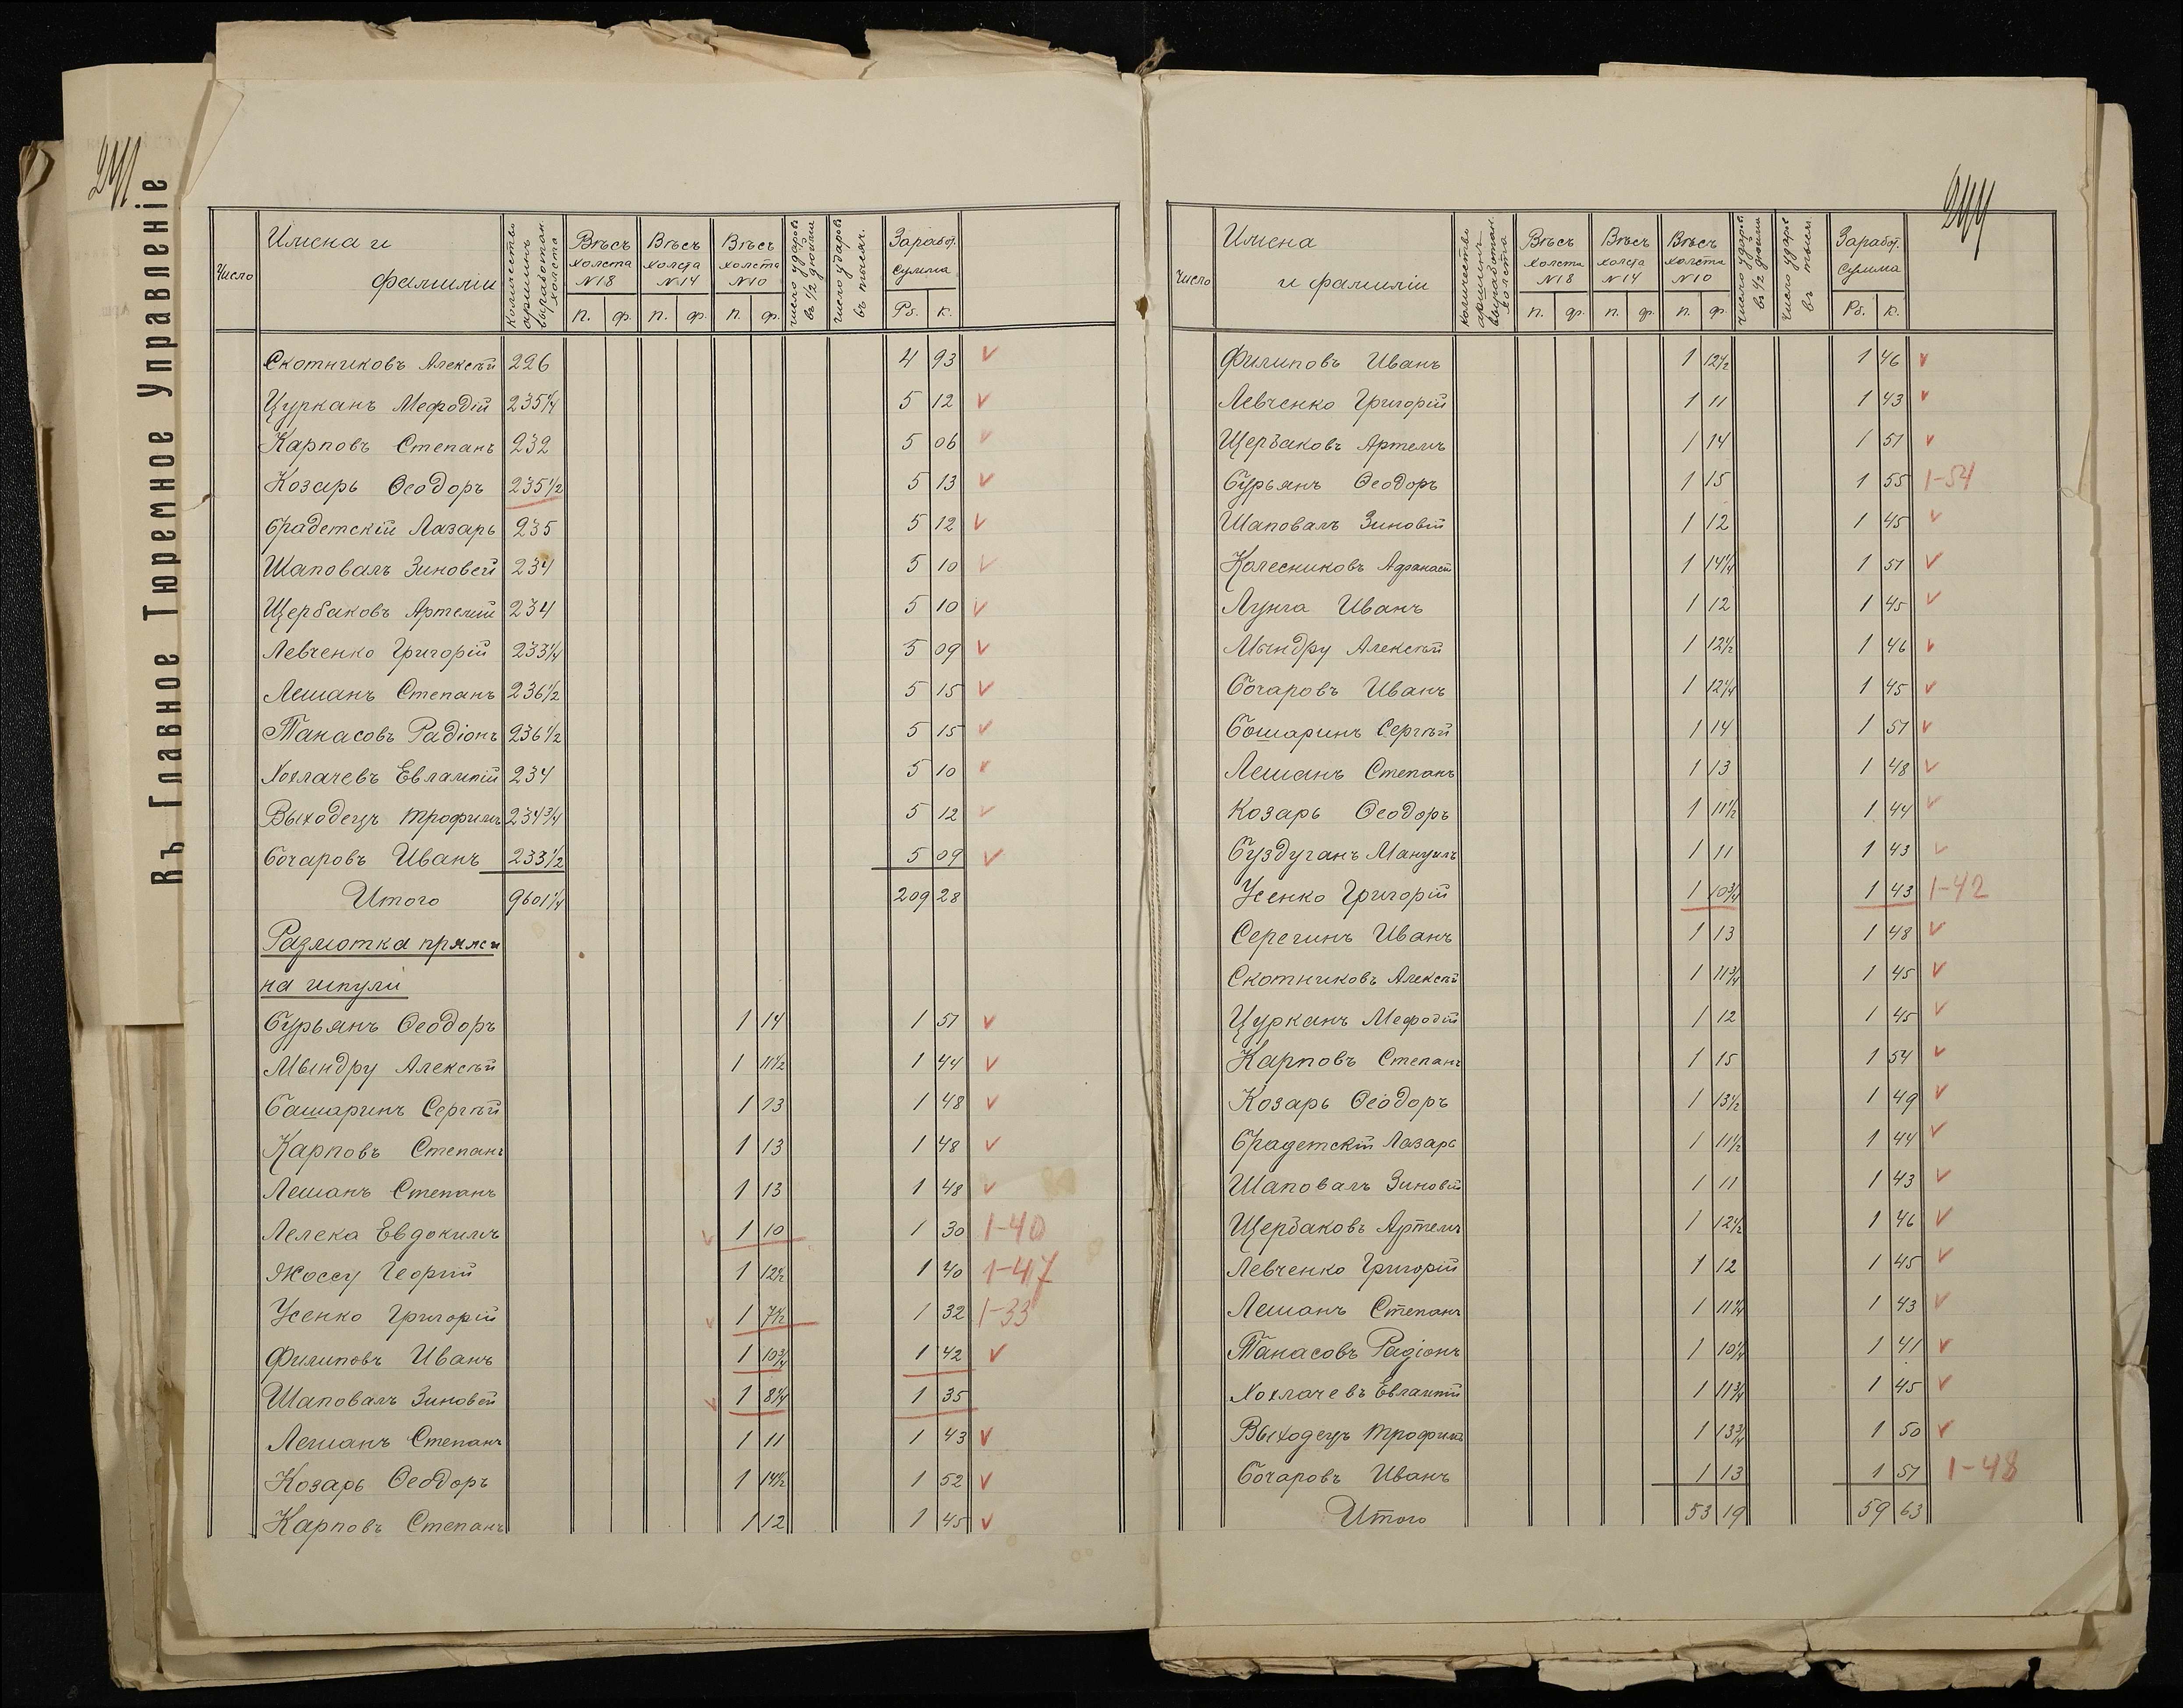 Въ Главное Тюремное Управленіе
Число Имена и фамиліи Количество аршинъ выработан. холста Вѣсъ холста №18 Вѣсъ холста №14 Вѣсъ холста №10 число ударовъ въ 1/2 дюйма число ударовъ въ тысяч. Заработ. сумма
п. ф. п. ф. п. ф. Рб. к.
Скотниковъ Алексѣй 226 4 93 ✓
Цурканъ Мефодій 235 1/4 5 12 ✓
Карповъ Степанъ 232 5 06 ✓
Козарь Ѳеодоръ 235 1/2 5 13 ✓
Градетскій Лазарь 235 5 12 ✓
Шаповалъ Зиновей 234 5 10 ✓
Щербаковъ Артемій 234 5 10 ✓
Левченко Григорій 233 1/4 5 09 ✓
Лешанъ Степанъ 236 1/2 5 15 ✓
Танасовъ Радіонъ 236 1/2 5 15 ✓
Хохлачевъ Евлампій 234 5 10 ✓
Выходецъ Трофимъ 234 3/4 5 12 ✓
Бочаровъ Иванъ 233 1/2 5 09 ✓
Итого 9601 1/4 209 28
Размотка пряжи
на шпули
Бурьянъ Ѳеодоръ 1 14 1 51 ✓
Мындру Алексѣй 1 11 1/2 1 44 ✓
Башаринъ Сергѣй 1 13 1 48 ✓
Карповъ Степанъ 1 13 1 48 ✓
Лешанъ Степанъ 1 13 1 48 ✓
Лелека Евдокимъ ✓ 1 10 1 30 1-40
Жоссу Георгій 1 12 1/2 1 40 1-47
Усенко Григорій ✓ 1 7 1/2 1 32 1-33
Филиповъ Иванъ 1 10 3/4 1 42 ✓
Шаповалъ Зиновей ✓ 1 8 1/4 1 35
Лешанъ Степанъ 1 11 1 43 ✓
Козарь Ѳеодоръ 1 14 1/2 1 52 ✓
Карповъ Степанъ 1 12 1 45 ✓
244
Число Имена и фамиліи Количество аршинъ выработан. холста Вѣсъ холста №18 Вѣсъ холста №14 Вѣсъ холста №10 число ударовъ въ 1/2 дюйма Число ударовъ въ тысяч. Заработ. Сумма
п. ф. п. ф. п. ф. Рб. к.
Филиповъ Иванъ 1 12 1/2 1 46 ✓
Левченко Григорій 1 11 1 43 ✓
Щербаковъ Артемъ 1 14 1 51 ✓
Бурьянъ Ѳеодоръ 1 15 1 55 1-54
Шаповалъ Зиновій 1 12 1 45 ✓
Колесниковъ Афанасій 1 14 1/4 1 51 ✓
Лунга Иванъ 1 12 1 45 ✓
Мындру Алексѣй 1 12 1/2 1 46 ✓
Бочаровъ Иванъ 1 12 1/4 1 45 ✓
Бошаринъ Сергѣй 1 14 1 51 ✓
Лешанъ Степанъ 1 13 1 48 ✓
Козарь Ѳеодоръ 1 11 1/2 1 44 ✓
Буздуганъ Мануилъ 1 11 1 43 ✓
Усенко Григорій 1 10 3/4 1 43 1-42
Серегинъ Иванъ 1 13 1 48 ✓
Скотниковъ Алексѣй 1 11 3/4 1 45 ✓
Цурканъ Мефодій 1 12 1 45 ✓
Карповъ Степанъ 1 15 1 54 ✓
Козарь Ѳеодоръ 1 13 1/2 1 49 ✓
Градетскій Лазарь 1 11 1/2 1 44 ✓
Шаповалъ Зиновій 1 11 1 43 ✓
Щербаковъ Артемъ 1 12 1/2 1 46 ✓
Левченко Григорій 1 12 1 45 ✓
Лешанъ Степанъ 1 11 1/4 1 43 ✓
Танасовъ Радіонъ 1 10 1/4 1 41 ✓
Хохлачевъ Евлампій 1 11 3/4 1 45 ✓
Выходецъ Трофимъ 1 13 3/4 1 50 ✓
Бочаровъ Иванъ 1 13 1 51 1-48
Итого 53 19 59 63